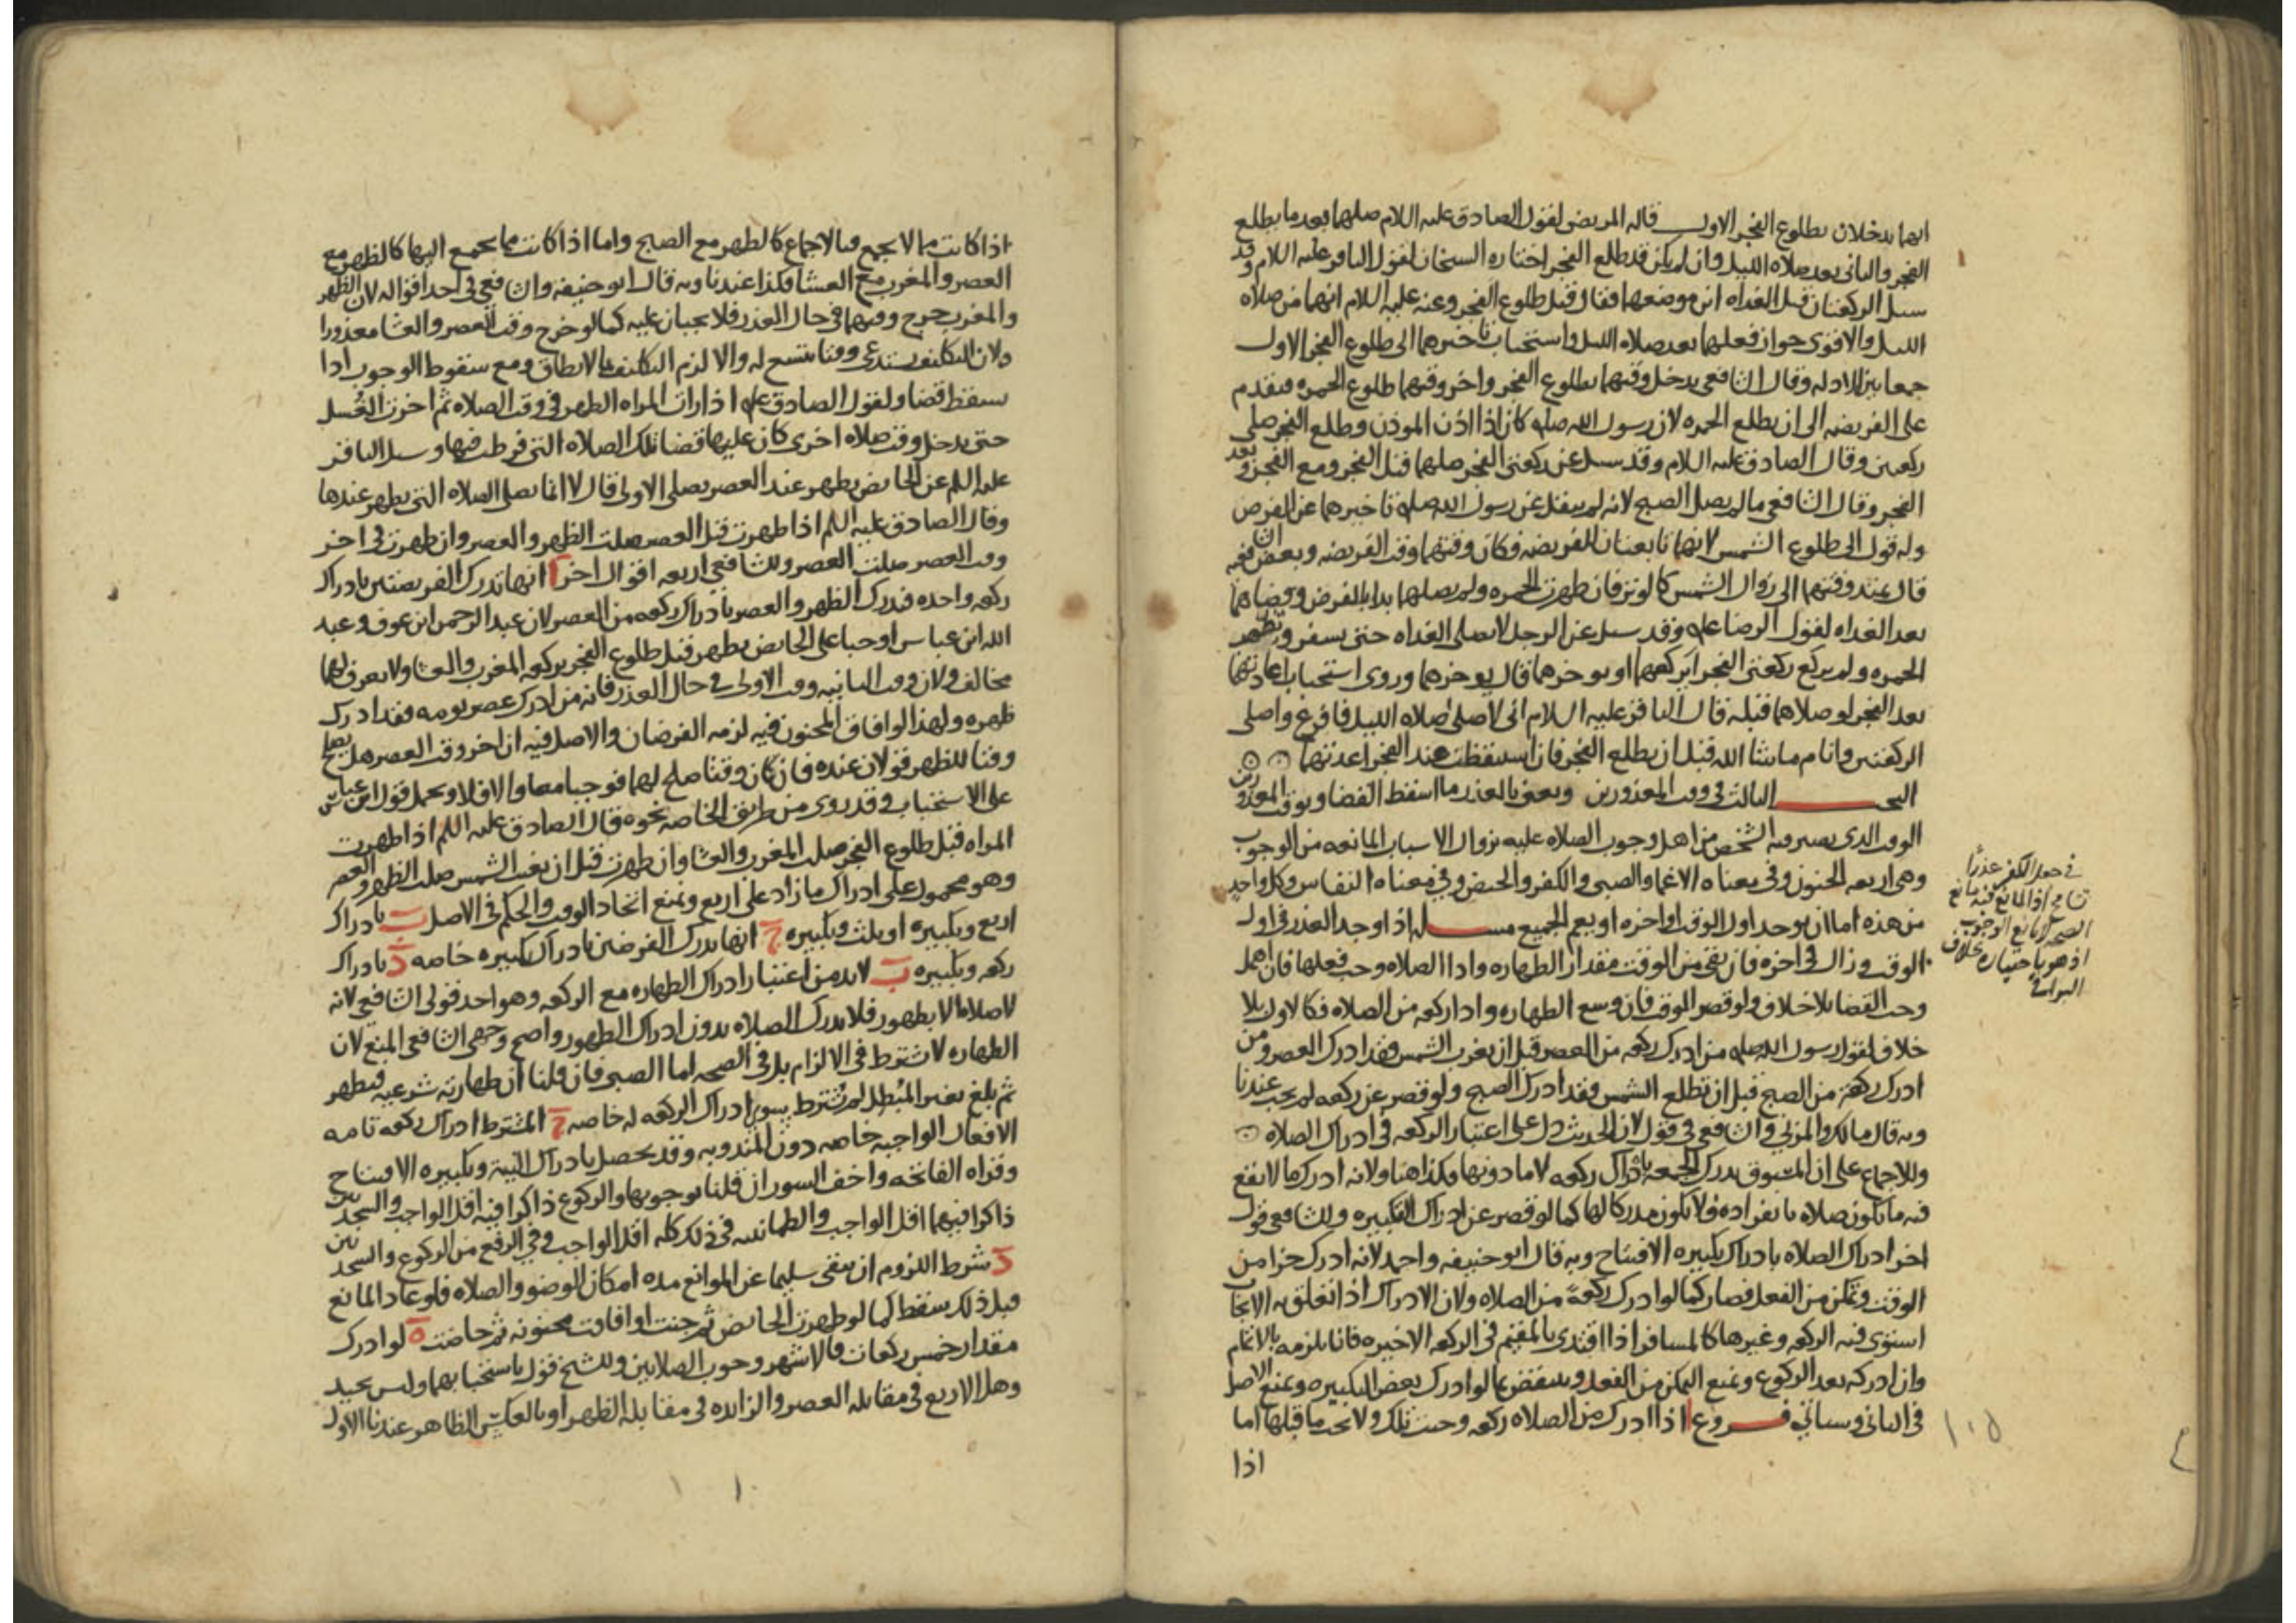 انهما يدخلان بطلوع الفجر الاول قاله المرتضى لقول الصادق عليه السلام صلهما بعد ما يطلع
الفجر والثاني بعد صلاه الليل وان لم يكن قد طلع الفجر اختاره الشيخان لقول الباقر عليه السلام وقد
سئل الركعتان قبل الغداه اين موضعهما فقال قبل طلوع الفجر وعنه عليه السلام انهما من صلاه
الليل والاقوى جواز فعلهما بعد صلاه الليل واستحباب تاخيرهما الى طلوع الفجر الاول
جمعا بين الادله وقال الشافعي يدخل وقتهما بطلوع الفجر واخر وقتهما طلوع الحمره فيقدم
على الفريضه الى ان يطلع الحمره لان رسول الله صلعم كان اذا اذن الموذن وطلع الفجر صلى
ركعتين وقال الصادق عليه السلام وقد سئل عن ركعتي الفجر صلهما قبل الفجر ومع الفجر وبعد
الفجر وقال الشافعي ما لم يصل الصبح لانه لم ينقل عن رسول الله صلعم تاخيرهما عن الفرض
وله قول الى طلوع الشمس لانهما تابعتان للفريضه فكان وقتهما وقت الفريضه وبعض الشافعيه
قال يمتد وقتهما الى زوال الشمس كالوتر فان ظهرت الحمره ولم يصلهما بدا بالفرض وقضاهما
بعد الغداه لقول الرضا عليه وقد سئل عن الرجل لا يصلي الغداه حتى يسفر وتظهر
الحمره ولم يركع ركعتي الفجر ايركعهما او يوخرهما قال يوخرهما وروى استحباب اعادتهما
بعد الفجر لو صلاهما قبله قال الباقر عليه السلام اني لاصلي صلاه الليل فافرغ واصلي
الركعتين وانام ما شا الله قبل ان يطلع الفجر فان استيقظت عند الفجر اعدتهما
البحث الثالث في وقت المعذورين ونعني بالعذر ما اسقط القضا وبوقت المعذورين
الوقت الذي يصير فيه الشخص من اهل وجوب الصلاه عليه بزوال الاسباب المانعه من الوجوب
وهي اربعه الجنون وفي معناه الاغما والصبى والكفر والحيض وفي معناه النفاس وكل واحد
من هذه اما ان يوجد اول الوقت او اخره او يعم الجميع مسله اذا وجد العذر في اول
الوقت وزال في اخره فان بقي من الوقت مقدار الطهاره وادا الصلاه وجب فعلها فان اهمل
وجب القضا بلا خلاف ولو قصر الوقت فان وسع الطهاره وادا ركعه من الصلاه فكالاول بلا
خلاف لقول رسول الله صلعم من ادرك ركعه من العصر قبل ان يغرب الشمس فقد ادرك العصر ومن
ادرك ركعة من الصبح قبل ان تطلع الشمس فقد ادرك الصبح ولو قصر عن ركعه لم يجب عندنا
وبه قال مالك والمزني والشافعي في قول لان الحديث دل على اعتبار الركعه في ادراك الصلاه
وللاجماع على ان المسبوق يدرك الجمعه بادراك ركعه لا ما دونها وكذا هنا ولانه ادرك ما لا يقع
فيه ما يكون صلاه بانفراده فلا يكون مدركا لها كما لو قصر عن ادراك التكبيره وللشافعي قول
اخر ادراك الصلاه بادراك تكبيره الافتتاح وبه قال ابو حنيفه واحمد لانه ادرك جزا من
الوقت وتمكن من الفعل فصار كما لو ادرك ركعةً من الصلاه ولان الادراك اذا تعلق به الايجاب
استوى فيه الركعه وغيرها كالمسافر اذا اقتدى بالمقيم في الركعه الاخيره فانا نلزمه بالاتمام
وان ادركه بعد الركوع ونمنع التمكن من الفعل وينتقض بما لو ادرك بعض التكبيره ونمنع الاصل
في الثاني وسياتي فروع ا اذا ادرك من الصلاه ركعه وجبت تلك ولا تجب ما قبلها اما
اذا
في جعل الكفر عذرا
تسامح اذ المانع فيه مانع
الصحه لا مانع الوجوب
اذ هو باختياره بخلاف
البواقي
١٠٥
اذا كانت مما لا يجمع فبالاجماع كالظهر مع الصبح واما اذا كانت مما يجمع اليها كالظهر مع
العصر والمغرب مع العشا فكذا عندنا وبه قال ابو حنيفه والشافعي في احد اقواله لان الظهر
والمغرب خرج وقتهما في حال العذر فلا يجبان عليه كما لو خرج وقت العصر والعشا معذورا
ولان التكليف يستدعي وقتا يتسع له والا لزم التكليف بما لا يطاق ومع سقوط الوجوب ادا
يسقط قضا ولقول الصادق عليه اذا رات المراه الطهر في وقت الصلاه ثم اخرت الغُسل
حتى يدخل وقت صلاه اخرى كان عليها قضا تلك الصلاه التي فرطت فيها وسئل الباقر
عليه السلم عن الحايض يطهر عند العصر يصلي الاولى قال لا انما يصلي الصلاه التي يطهر عندها
وقال الصادق عليه السلم اذا طهرت قبل العصر صلت الظهر والعصر وان طهرت في اخر
وقت العصر صلت العصر وللشافعي اربعه اقوال اخر ا انها تدرك الفريضتين بادراك
ركعه واحده فتدرك الظهر والعصر بادراك ركعه من العصر لان عبد الرحمن ابن عوف وعبد
الله ابن عباس اوجبا على الحايض يطهر قبل طلوع الفجر بركعه المغرب والعشا ولا يعرف لهما
مخالف ولان وقت الثانيه وقت الاولى في حال العذر فانه من ادرك عصر يومه فقد ادرك
ظهره ولهذا لو افاق المجنون فيه لزمه الفرضان والاصل فيه ان اخر وقت العصر هل يصلح
وقتا للظهر قولان عنده فان كان وقتا صلح لهما فوجبا معا والا فلا ويحمل قول ابن عباس
على الاستحباب وقد روى من طريق الخاصه نحوه قال الصادق عليه السلم اذا طهرت
المراه قبل طلوع الفجر صلت المغرب والعشا وان طهرت قبل ان يغيب الشمس صلت الظهر والعصر
وهو محمول على ادراك ما زاد على اربع ونمنع اتحاد الوقت والحكم في الاصل ب بادراك
اربع وتكبيره او ثلث وتكبيره ج انها يدرك الفرضين بادراك تكبيره خاصه د بادراك
ركعه وتكبيره ب لا بد من اعتبار ادراك الطهاره مع الركعه وهو احد قولي الشافعي لانه
لا صلاه الا بطهور فلا يدرك الصلاه بدون ادراك الطهور واصح وجهي الشافعي المنع لان
الطهاره لا تشترط في الالزام بل في الصحه اما الصبي فان قلنا ان طهارته شرعيه فتطهر
ثم بلغ بغير المُبطل لم تُشترط سوى ادراك الركعه له خاصه ج المشترط ادراك ركعه تامه
الافعال الواجبه خاصه دون المندوبه وقد يحصل بادراك النية وتكبيره الافتتاح
وقراه الفاتحه واخف السور ان قلنا بوجوبها والركوع ذاكرا فيه اقل الواجب والسجدتين
ذاكرا فيهما اقل الواجب والطمانينه في ذلك كله اقل الواجب وفي الرفع من الركوع والسجدتين
د شرط اللزوم ان يبقى سليما عن الموانع مده امكان الوضو والصلاه فلو عاد المانع
قبل ذلك يسقط كما لو طهرت الحايض ثم جنت او افاقت مجنونه ثم حاضت ه لو ادرك
مقدار خمس ركعات فالاشهر وجوب الصلاتين وللشيخ قول باستحبابهما وليس بجيد
وهل الاربع في مقابله العصر والزايده في مقابله الظهر او بالعكس الظاهر عندنا الاول